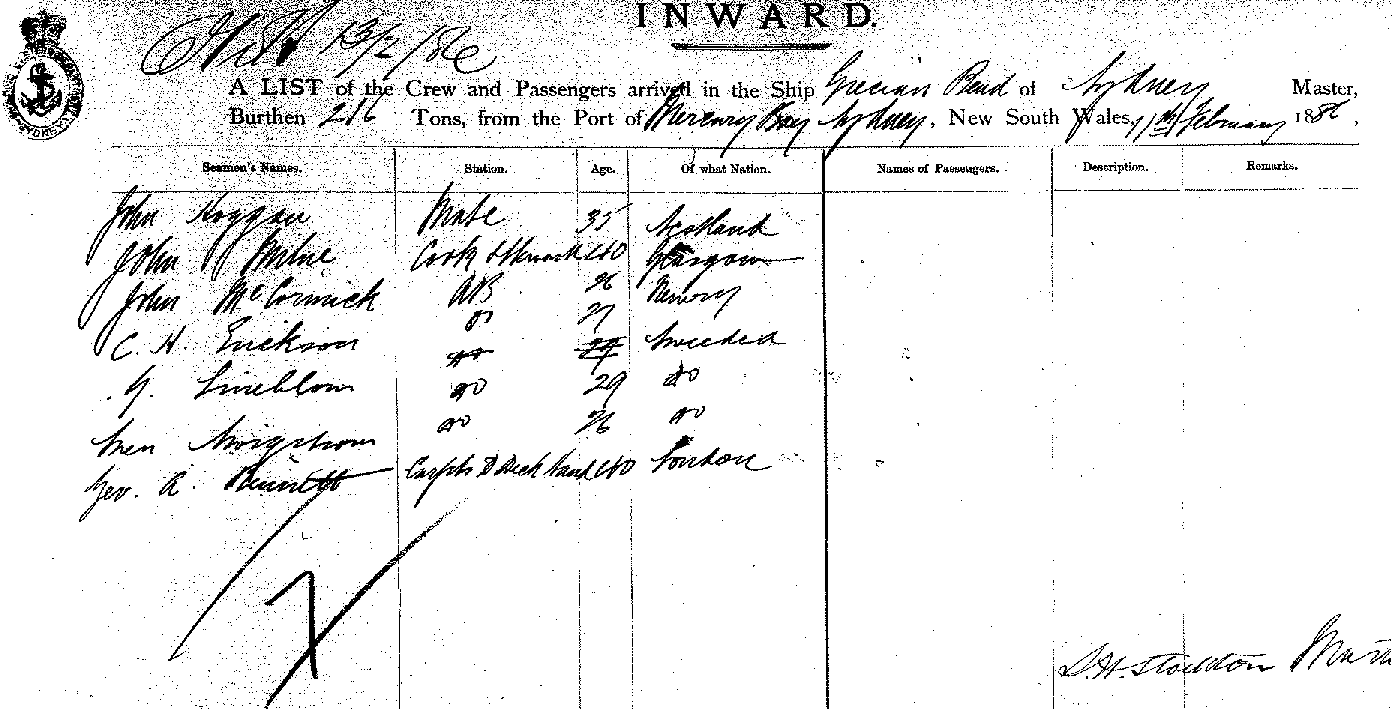 INWARD.
13/2/86
A LIST of the Crew and Passengers arrived in the Ship Grecian Bend of Sydney Master,
Burthen 216 Tons, from the Port of Mercury Bay Sydney, New South Wales, 11th February 1886.
Seamen's Names. Station. Age. Of what Nation. Names of Passengers. Description. Remarks.
John Hoggan Mate 35 Scotland
John Milne Cook & Steward 40 Glasgow
John McCormick AB 26 Newry
C. H. Erickson do 27 Sweeded
do 29 do
do 26 do
Geo. R. Bennett Carptr & Deck hand 40 London
7
S.H. Stockton